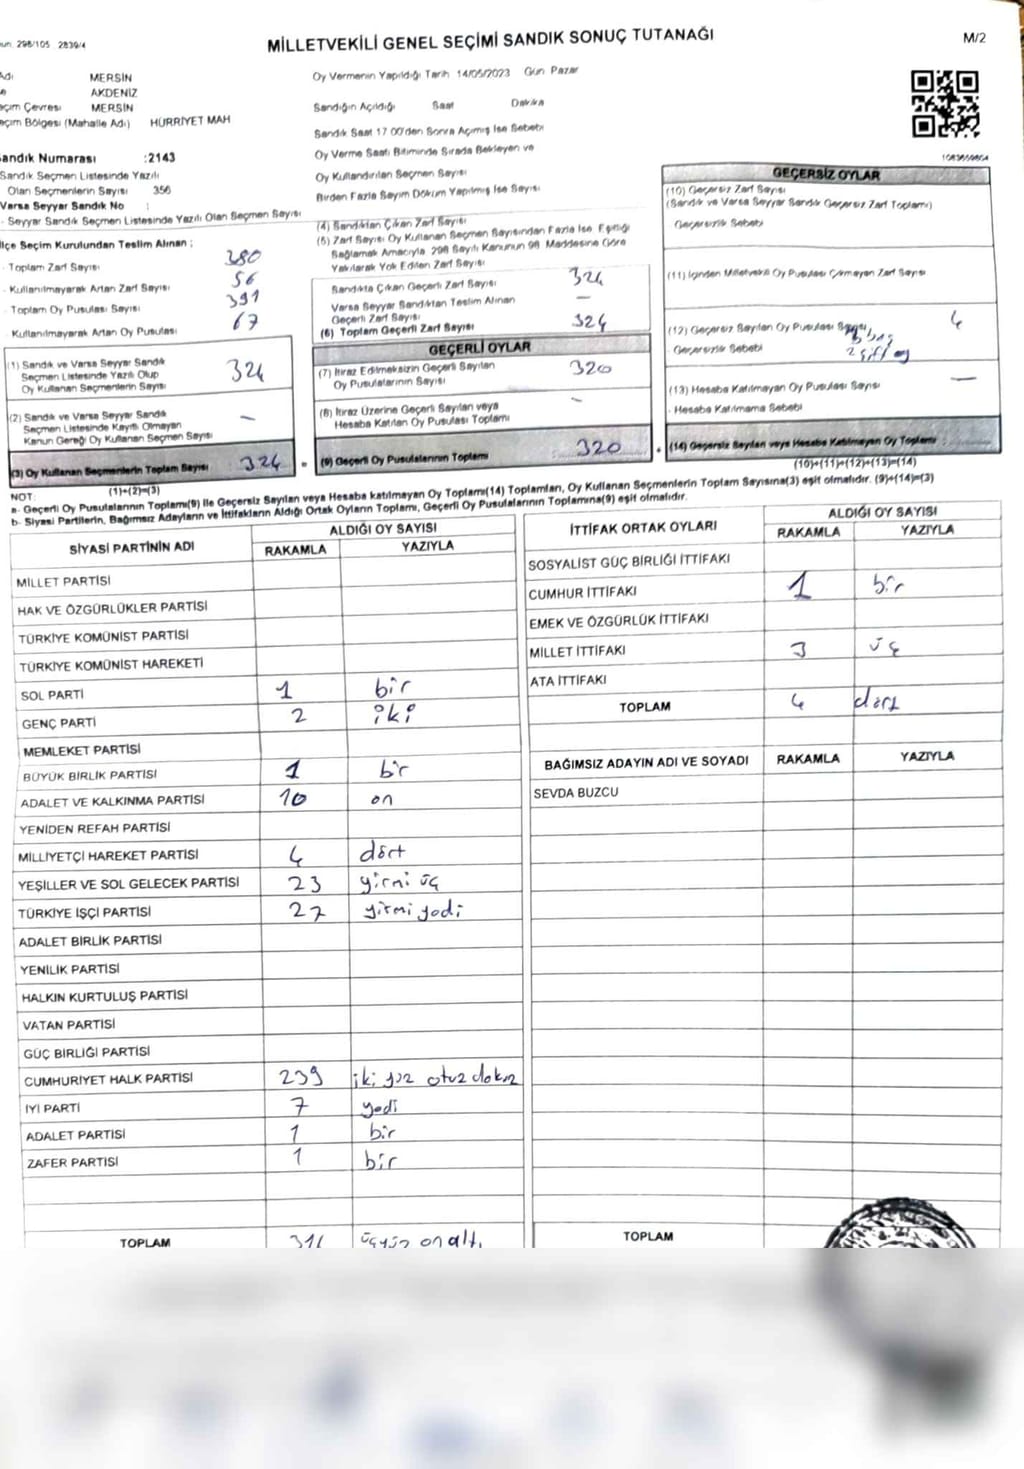 298/105 2839/4
MİLLETVEKİLİ GENEL SEÇİMİ SANDIK SONUÇ TUTANAĞI
M/2
MERSİN
AKDENİZ
Çevresi MERSİN
Bölgesi (Mahalle Adı) HÜRRİYET MAH
Sandık Numarası :2143
Sandık Seçmen Listesinde Yazılı
Olan Seçmenlerin Sayısı 356
Varsa Seyyar Sandık No :
- Seyyar Sandık Seçmen Listesinde Yazılı Olan Seçmen Sayısı
İlçe Seçim Kurulundan Teslim Alınan ;
- Toplam Zarf Sayısı 380
- Kullanılmayarak Artan Zarf Sayısı 56
- Toplam Oy Pusulası Sayısı 391
- Kullanılmayarak Artan Oy Pusulası 67
(1) Sandık ve Varsa Seyyar Sandık
Seçmen Listesinde Yazılı Olup
Oy Kullanan Seçmenlerin Sayısı 324
(2) Sandık ve Varsa Seyyar Sandık
Seçmen Listesinde Kayıtlı Olmayan
Kanun Gereği Oy Kullanan Seçmen Sayısı —
(3) Oy Kullanan Seçmenlerin Toplam Sayısı : 324
(1)+(2)=(3)
Oy Vermenin Yapıldığı Tarih 14/05/2023 Gün Pazar
Sandığın Açıldığı Saat Dakika
Sandık Saat 17 00'den Sonra Açılmış İse Sebebi
Oy Verme Saati Bitiminde Sırada Bekleyen ve
Oy Kullandırılan Seçmen Sayısı
Birden Fazla Sayım Döküm Yapılmış İse Sayısı
(4) Sandıktan Çıkan Zarf Sayısı
(5) Zarf Sayısı Oy Kullanan Seçmen Sayısından Fazla İse Eşitliği
Sağlamak Amacıyla 298 Sayılı Kanunun 98. Maddesine Göre
Yakılarak Yok Edilen Zarf Sayısı
Sandıkta Çıkan Geçerli Zarf Sayısı 324
Varsa Seyyar Sandıktan Teslim Alınan
Geçerli Zarf Sayısı —
(6) Toplam Geçerli Zarf Sayısı 324
GEÇERLİ OYLAR
(7) İtiraz Edilmeksizin Geçerli Sayılan
Oy Pusulalarının Sayısı 320
(8) İtiraz Üzerine Geçerli Sayılan veya
Hesaba Katılan Oy Pusulası Toplamı -
= (9) Geçerli Oy Pusulalarının Toplamı 320
1083659804
GEÇERSİZ OYLAR
(10) Geçersiz Zarf Sayısı
(Sandık ve Varsa Seyyar Sandık Geçersiz Zarf Toplamı)
Geçersizlik Sebebi
(11) İçinden Milletvekili Oy Pusulası Çıkmayan Zarf Sayısı
(12) Geçersiz Sayılan Oy Pusulası Sayısı 4
- Geçersizlik Sebebi
(13) Hesaba Katılmayan Oy Pusulası Sayısı —
- Hesaba Katılmama Sebebi
+ (14) Geçersiz Sayılan veya Hesaba Katılmayan Oy Toplamı
(10)+(11)+(12)+(13)=(14)
NOT:
a- Geçerli Oy Pusulalarının Toplamı(9) ile Geçersiz Sayılan veya Hesaba katılmayan Oy Toplamı(14) Toplamları, Oy Kullanan Seçmenlerin Toplam Sayısına(3) eşit olmalıdır. (9)+(14)=(3)
b- Siyasi Partilerin, Bağımsız Adayların ve İttifakların Aldığı Ortak Oyların Toplamı, Geçerli Oy Pusulalarının Toplamına(9) eşit olmalıdır.
SİYASİ PARTİNİN ADI ALDIĞI OY SAYISI
RAKAMLA YAZIYLA
MİLLET PARTİSİ
HAK VE ÖZGÜRLÜKLER PARTİSİ
TÜRKİYE KOMÜNİST PARTİSİ
TÜRKİYE KOMÜNİST HAREKETİ
SOL PARTİ 1 bir
GENÇ PARTİ 2 iki
MEMLEKET PARTİSİ
BÜYÜK BİRLİK PARTİSİ 1 bir
ADALET VE KALKINMA PARTİSİ 10 on
YENİDEN REFAH PARTİSİ
MİLLİYETÇİ HAREKET PARTİSİ 4 dört
YEŞİLLER VE SOL GELECEK PARTİSİ 23 yirmi üç
TÜRKİYE İŞÇİ PARTİSİ 27 yirmi yedi
ADALET BİRLİK PARTİSİ
YENİLİK PARTİSİ
HALKIN KURTULUŞ PARTİSİ
VATAN PARTİSİ
GÜÇ BİRLİĞİ PARTİSİ
CUMHURİYET HALK PARTİSİ 239 iki yüz otuz dokuz
İYİ PARTİ 7 yedi
ADALET PARTİSİ 1 bir
ZAFER PARTİSİ 1 bir
TOPLAM 316 üçyüz on altı
İTTİFAK ORTAK OYLARI ALDIĞI OY SAYISI
RAKAMLA YAZIYLA
SOSYALİST GÜÇ BİRLİĞİ İTTİFAKI
CUMHUR İTTİFAKI 1 bir
EMEK VE ÖZGÜRLÜK İTTİFAKI
MİLLET İTTİFAKI 3 üç
ATA İTTİFAKI
TOPLAM 4 dört
BAĞIMSIZ ADAYIN ADI VE SOYADI RAKAMLA YAZIYLA
SEVDA BUZCU
TOPLAM